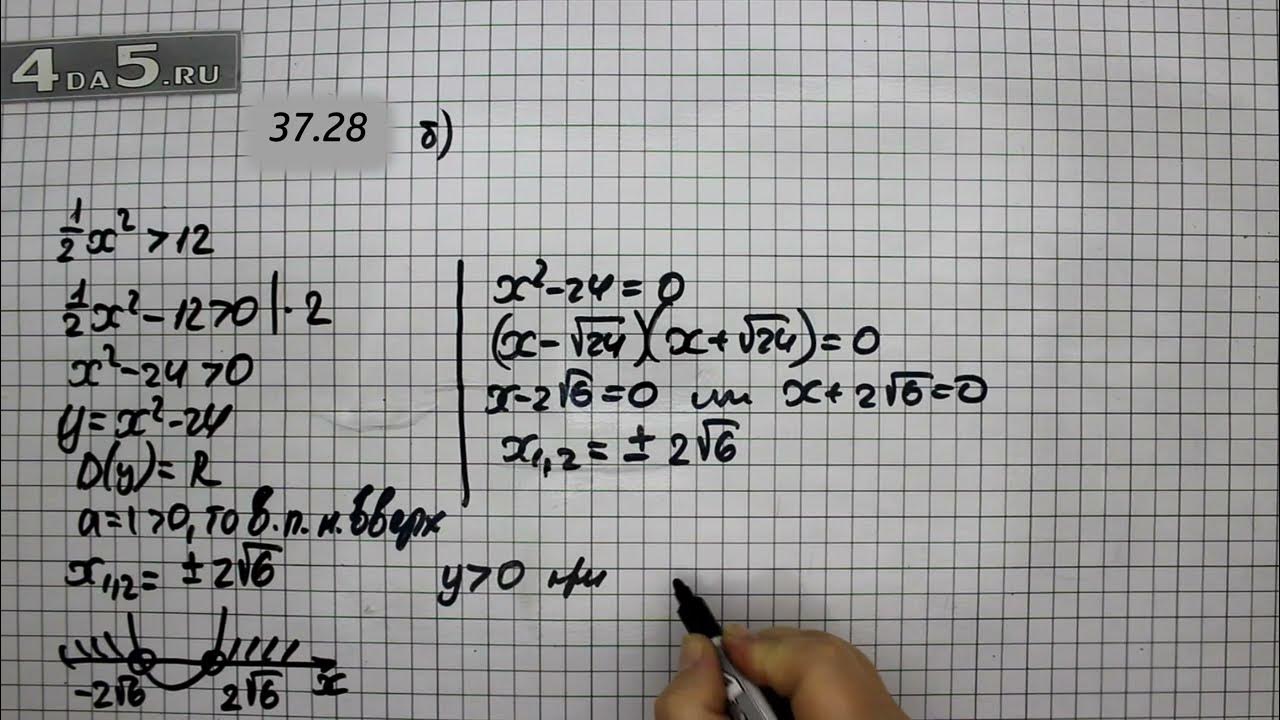 4DA5.RU
37.28 б)
1/2 x² > 12
1/2 x² - 12 > 0 | · 2
x² - 24 > 0
y = x² - 24
D(y) = R
a = 1 > 0, то в. п. н. вверх
x₁,₂ = ± 2√6
-2√6 2√6 x
x² - 24 = 0
(x - √24)(x + √24) = 0
x - 2√6 = 0 или x + 2√6 = 0
x₁,₂ = ± 2√6
y > 0 при